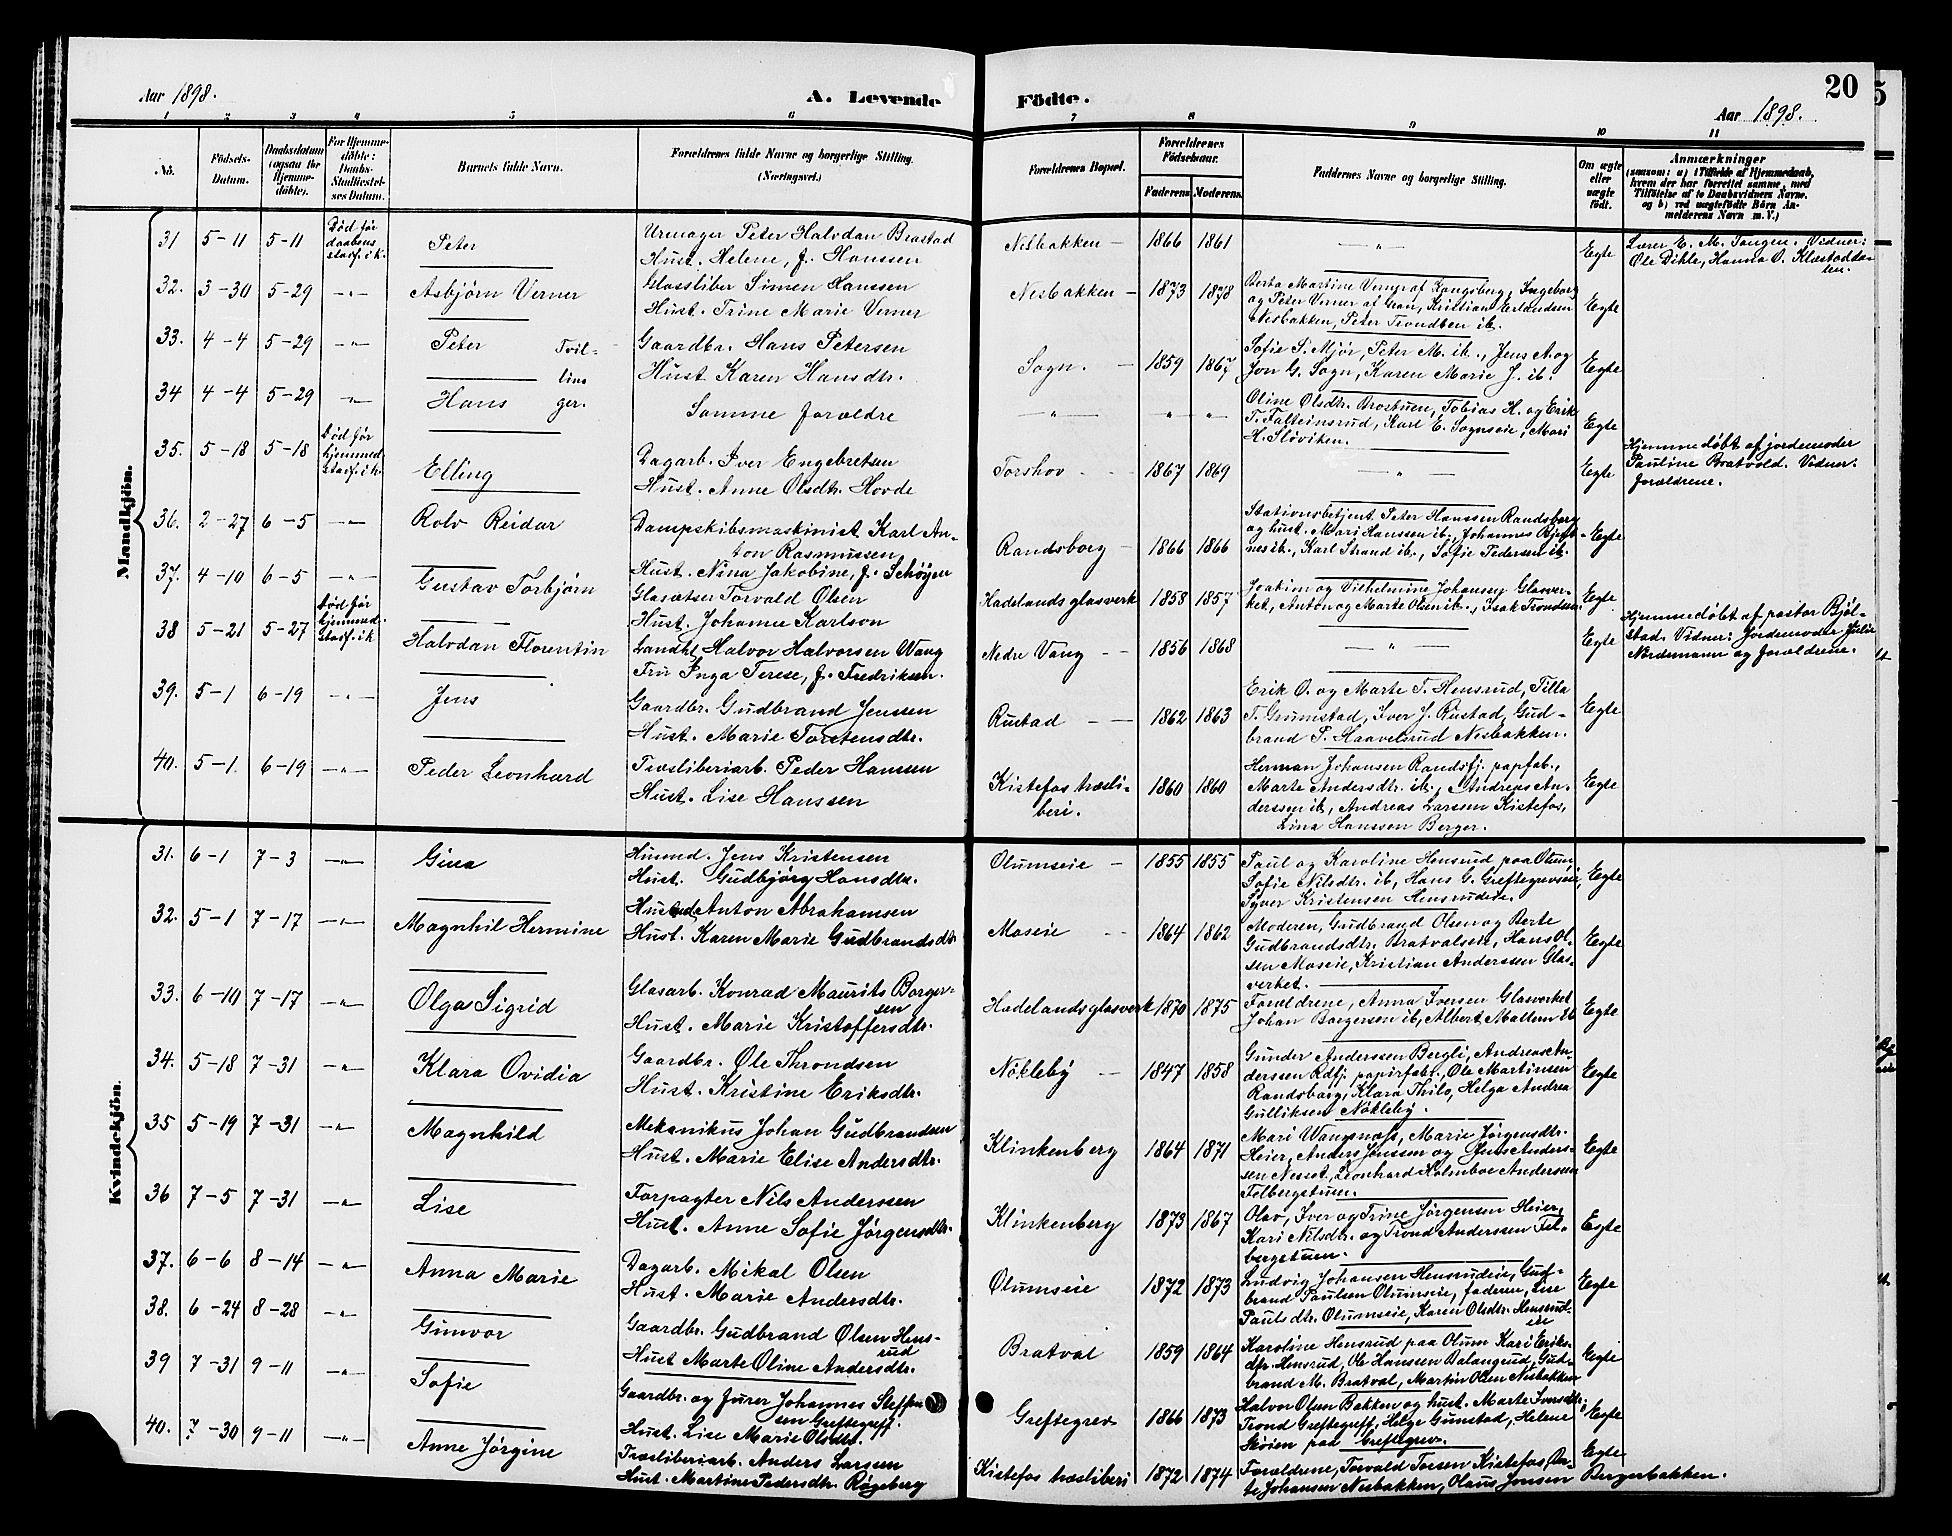 Aar 1898.
A. Levende
Födte.
20
Aar 1898.
1 2 3 4 5 6 7 8 9 10 11
No.
Födsels-Datum.
Daabsdatum (ogsaa for Hjemme-döbte).
For Hjemme-döbte: Daabs-Stadfæstel-ses Datum.
Barnets fulde Navn.
Forældrenes fulde Navne og borgerlige Stilling. (Næringsvei.)
Forældrenes Bopæl.
Forældrenes Födselsaar.
Faderens
Moderens.
Faddernes Navne og borgerlige Stilling.
Om ægte eller uægte födt.
Anmærkninger
(saasom: a) i Tilfælde af Hjemmedaab, hvem der har forrettet samme, med Tilföielse af to Daabsvidners Navne, og b) ved uægtefödte Börn An-melderens Navn m. V.)
Mandkjön.
31 5-11 5-11 Död før daabens stadf. i k. Peter
Urmager Peter Halvdan Brastad
Hust. Helene, f. Hanssen
Nesbakken 1866 1861 — " — Egte
Lærer E. M. Tangen. Vidner:
Ole Dihle, Hanna O. Klæstadda-
len.
32. 3-30 5-29 -"- Asbjørn Verner
Glassliber Simen Hanssen
Hust. Trine Marie Verner
Nesbakken 1873 1878
Berta Martine Verner af Kongsberg, Ingeborg
og Peter Verner af Gran, Kristian Erlandsen
Nesbakken, Peter Trondsen ib.
Egte
33. 4-4 5-29 -"- Peter Tvil-
Gaardbr. Hans Petersen
Hust Karen Hansdtr.
Sogn. 1859 1867
Sofie S. Mjør, Peter M. ib., Jens A. og
Jon G. Sogn, Karen Marie J. ib.
Egte
34 4-4 5-29 " Hans linger.
Samme forældre
— " — " "
Oline Olsdtr. Brostuen, Tobias H. og Erik
T. Falteinsrud, Karl E. Sognseie, Mari
H. Sløviken.
Egte
35. 5-18 5-18 Död før hjemmed. stadf. i k. Elling
Dagarb. Iver Engebretsen
Hust. Anne Olsdtr. Hovde
Torshov 1867 1869 — " — Egte
Hjemmedøbt af jordemoder
Pauline Bratvold. Vidner:
forældrene.
36. 2-27 6-5 -"- Rolv Reidar
Dampskibsmaskinist Karl An-
ton Rasmussen
Hust. Nina Jakobine, f. Schøyen
Randsborg 1866 1866
Stationsbetjent Peter Hanssen Randsborg
og hust. Mari Hanssen ib., Johannes
nes ib., Karl Strand ib., Sofie Pedersen ib.
Egte
37. 4-10 6-5 -"- Gustav Torbjørn
Glasætser Torvald Olsen
Hust. Johanne Karlson
Hadelands glasverk 1858 1857
Joakim og Vilhelmine Johansen Glasver-
ket, Anton og Marte Olsen ib., Isak Trondsen
Egte
38 5-21 5-27 Död før hjemmed. stadf. i k. Halvdan Florentin
Landhl. Halvor Halvorsen Wang
Fru Inga Terese, f. Fredriksen.
Nedre Vang 1856 1868 — " — Egte
Hjemmedøbt af pastor Bjøl-
stad. Vidner: Jordemoder Julie
Nordemann og forældrene.
39. 5-1 6-19 -"- Jens
Gaardbr. Gudbrand Jenssen
Hust. Marie Torstensdtr.
Rustad 1862 1863
Erik O. og Marte T. Hensrud, Tilla
T. Grumstad, Iver J. Rustad, Gud-
brand P. Haavelsrud Nesbakken.
Egte
40. 5-1 6-19 -"- Peder Leonhard
Træsliberiarb. Peder Hanssen
Hust. Lise Hanssen
Kistefos træsli-
beri. 1860 1860
Herman Johansen Randsfj. papfab.,
Marte Andersdtr. ib., Andreas An-
derssen ib., Andreas Larssen Kistefos,
Lina Hanssen Berger.
Egte
Kvindekjön.
31. 6-1 7-3 -"- Gina
Husmd. Jens Kristensen
Hust. Gudbjørg Hansdtr.
Olumseie 1855 1855
Paul og Karoline Hensrud paa Olum,
Sofie Nilsdtr. ib, Hans G. Greftegrevseie,
Syver Kristensen Hensrudeie.
Egte
32. 5-1 7-17 -"- Magnhil Hermine
Husmd Anton Abrahamsen
Hust. Karen Marie Gudbrandsdtr
Moseie 1864 1862
Moderen, Gudbrand Olsen og Berte
Gudbrandsdtr. Bratvalseie, Hans Ol-
sen Moseie, Kristian Anderssen Glas-
verket.
Egte
33. 6-10 7-17 -"- Olga Sigrid
Glasarb. Konrad Maurits Borger-
sen
Hust. Marie Kristoffersdtr.
Hadelands glasverk 1870 1875
Forældrene, Anna Iversen Glasverket
Johan Borgersen ib, Albert Mattern ib
Egte
34. 5-18 7-31 -"- Klara Ovidia
Gaardbr. Ole Throndsen
Hust. Kristine Eriksdtr.
Nökleby 1847 1858
Gunder Anderssen Bergli, Andreas An-
derssen Rdfj. papirfabr. Ole Martinsen
Randsborg, Klara Thilo, Helga Andrea
Gulliksen Nökleby.
Egte
35 5-19 7-31 -"- Magnhild
Mekanikus Johan Gudbrandsen
Hust. Marie Elise Andersdtr.
Klinkenberg 1864 1871
Mari Wangsnæss, Marie Jørgensdtr.
Heier, Anders Jonssen og Jens Anders-
sen Nesset, Leonhard Holmboe Andersen
Felbergstuen.
Egte
36 7-5 7-31 -"- Lise
Forpagter Nils Anderssen
Hust. Anne Sofie Jørgensdtr.
Klinkenberg 1873 1867
Olav, Iver og Trine Jørgensen Heier,
Kari Nilsdtr. og Trond Anderssen Fel-
bergstuen.
Egte
37. 6-6 8-14 -"- Anna Marie
Dagarb. Mikal Olsen
Hust. Marie Andersdtr.
Olumseie 1872 1873
Ludvig Johansen Hensrudeie, Gud-
brand Paulsen Olumseie, faderen, Lise
Paulsdtr. Olumseie, Karen Olsdtr. Hensrud-
eie
Egte
38. 6-24 8-28 -"- Gunvor
Gaardbr. Gudbrand Olsen Hens-
rud
Hust Marte Oline Andersdtr.
Bratval 1859 1864
Karoline Hensrud paa Olum Kari Eriks-
dtr. Hensrud, Ole Hanssen Balangrud, Gud-
brand M. Bratval, Martin Olsen Nesbakken
Egte
39 7-31 9-11 -"- Sofie
Gaardbr. og furer Johannes Steffen-
sen Greftegreff.
Hust. Lise Marie Olsdtr.
Greftegrev 1866 1873
Halvor Olsen Bakken og hust. Marte Iversdtr.
Trond Greftegreff, Helge Gunstad, Helene
Skøien paa Greftegrev.
Egte
40. 7-30 9-11 -"- Anne Jørgine
Træsliberiarb. Anders Larssen
Hust. Martine Pedersdtr. Røgeberg
Kistefos træsliberi 1872 1874
Forældrene, Torvald Torsen Kistefos
Johansen Nesbakken, Olaus Jonsen Bergerbakken.
Egte